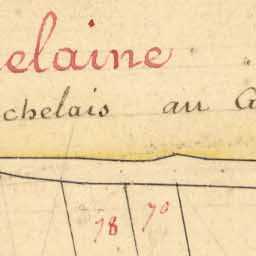 elaine
chelais au
78 70